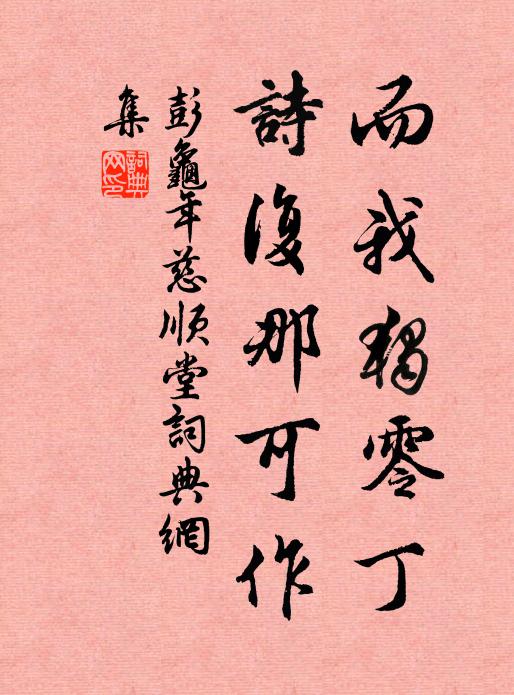 而我独零丁
詩復那可作
彭龜年慈順堂詞典網
集
詞典
网印